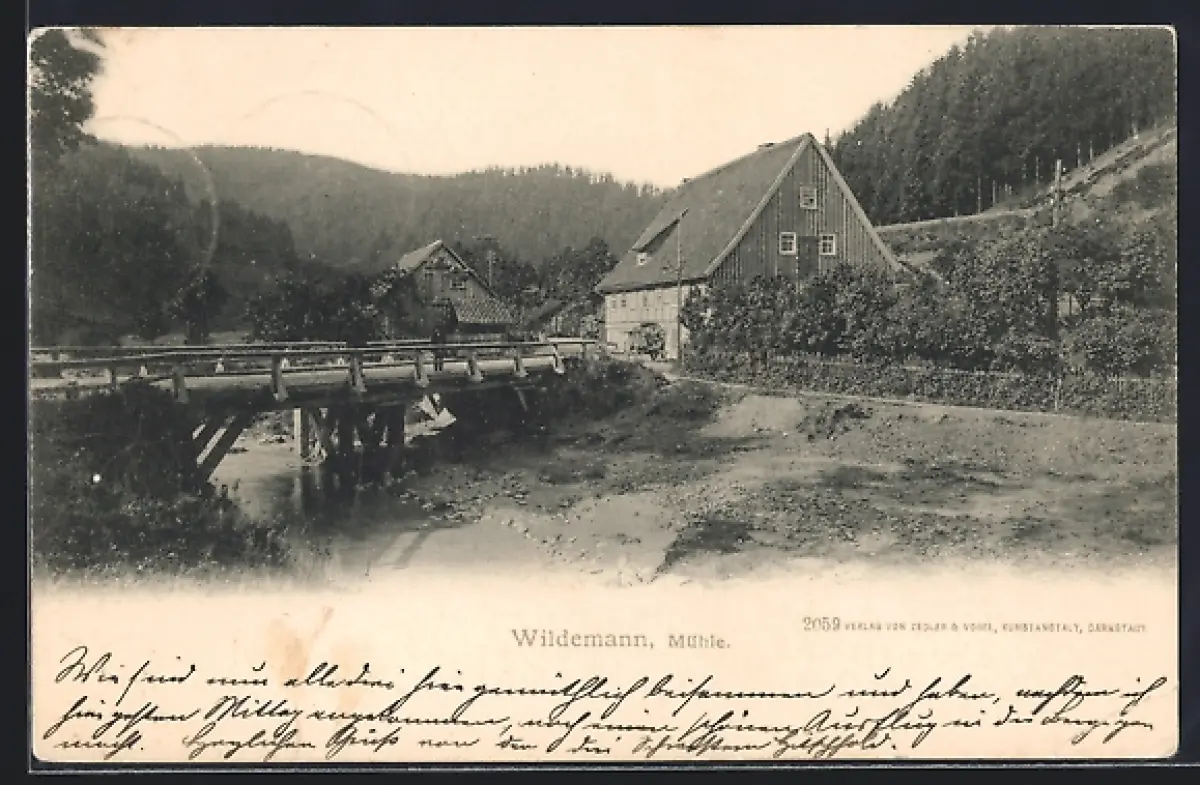 Wildemann, Mühle.
2059 VERLAG VON ZEDLER & VOGEL, KUNSTANSTALT, DARMSTADT.
Wir sind nun alle drei hier gemüthlich beisammen und haben, nachdem ich
hier gestern Mittag angekommen, noch einen schönen Ausflug in die Berge ge-
macht. Herzlichen Gruß von den drei Schwestern